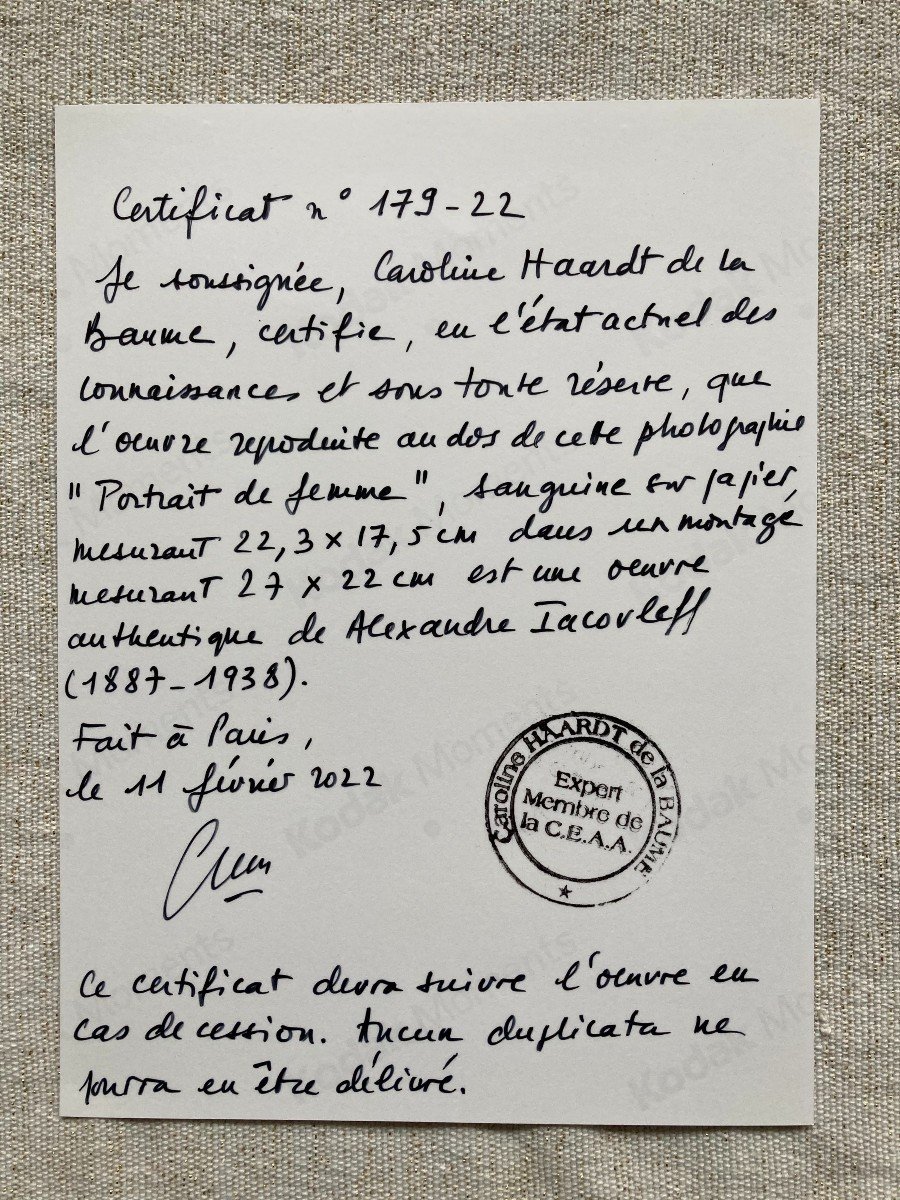 Certificat n° 179-22
Je soussignée, Caroline Haardt de la
Baume, certifie, en l'état actuel des
connaissances et sous toute réserve, que
l'oeuvre reproduite au dos de cette photographie
"Portrait de femme", sanguine sur papier,
mesurant 22,3 x 17,5 cm dans un montage
mesurant 27 x 22 cm est une oeuvre
authentique de Alexandre Iacovleff
(1887-1938).
Fait à Paris,
le 11 février 2022
Caroline HAARDT de la BAUME
Expert
Membre de
la C.E.A.A.
Ce certificat devra suivre l'oeuvre en
cas de cession. Aucun duplicata ne
pourra en être délivré.
Kodak Moments